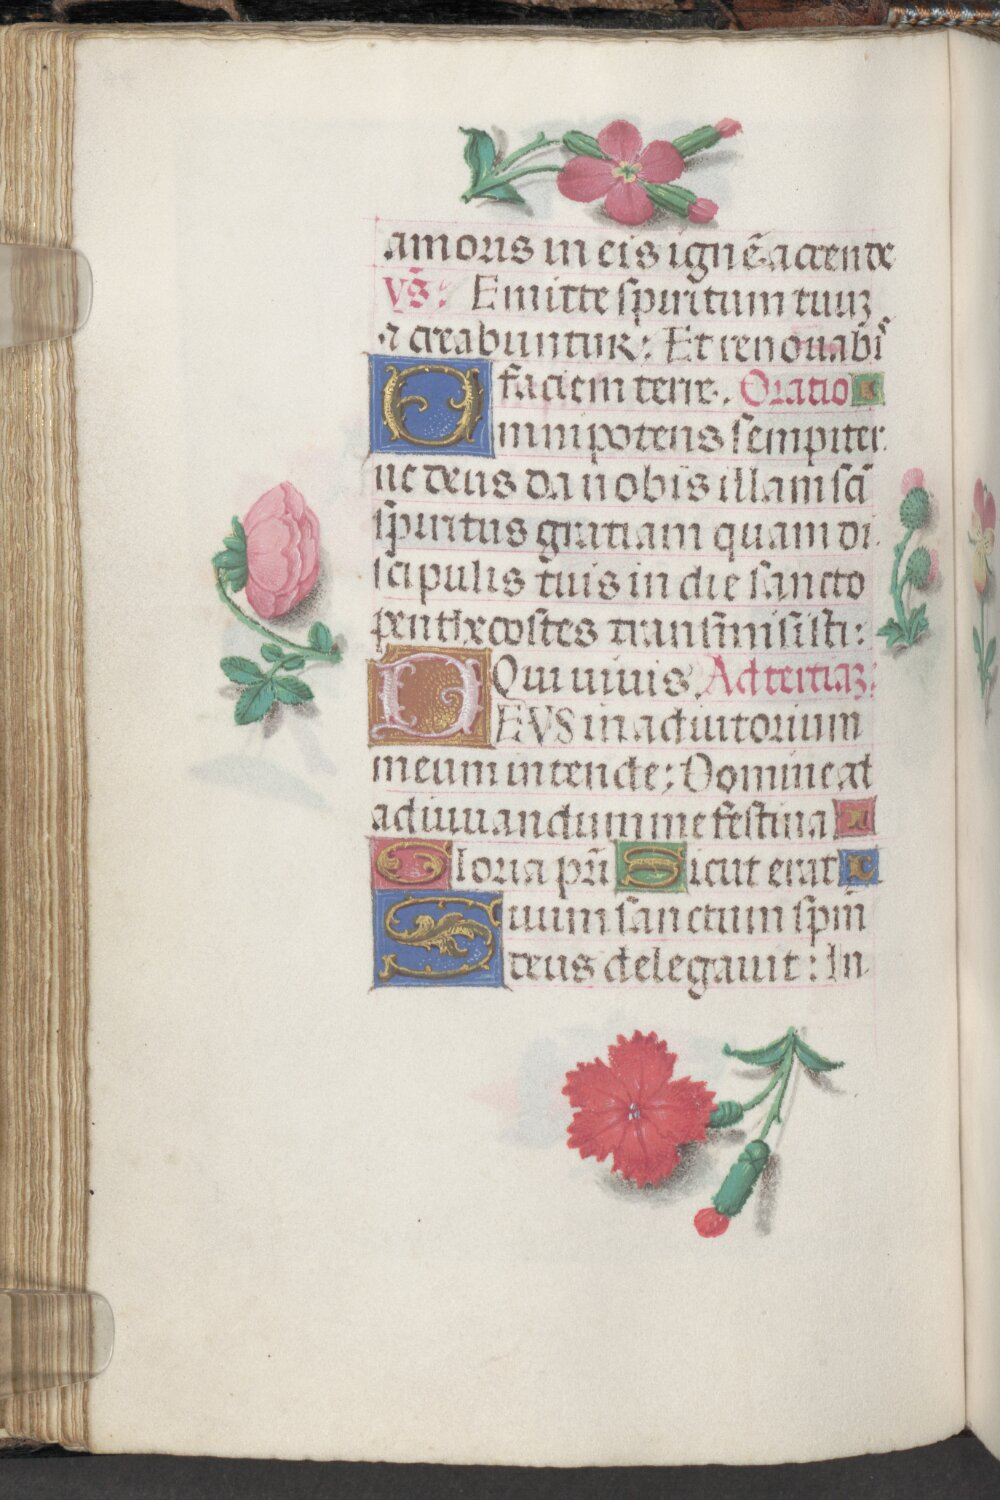 amoris in eis ignē accende
Vs̄: Emitte spiritum tuuʒ
⁊ creabuntur: Et renouabis̄
faciem terre. Oratio
Omnipotens sempiter
ne deus da nobis illam scā
spiritus gratiam quam di
scipulis tuis in die sancto
penthecostes transmisisti:
Qui uiuis. Ad tertiaʒ:
DEVS in adiutorium
meum intende: Domine ad
adiuuandum me festina
Gloria prī Sicut erat
Suum sanctum spm̄
deus delegauit: In